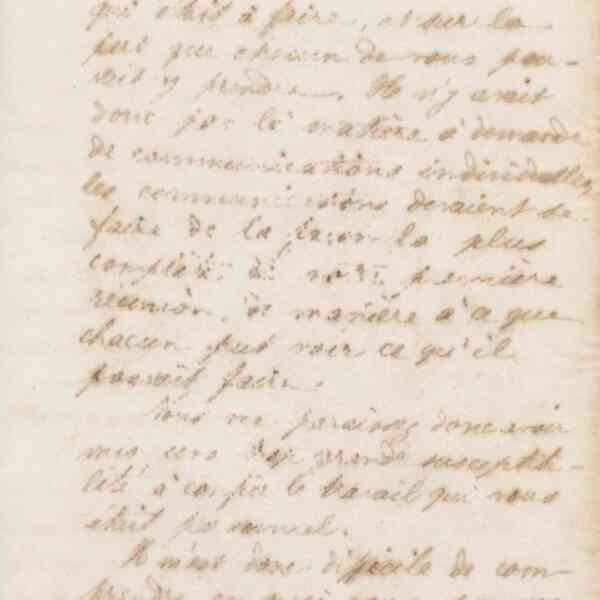 qui était à faire, et sur la
part que chacun de nous pou-
vait y prendre. Il n'y avait
donc pas là matière à demande
de communications individuelles,
les communications devaient se
faire de la façon la plus
complète à notre première
réunion, de manière à ce que
chacun put voir ce qu'il
pouvait faire.
Vous me paraissez donc avoir
mis une trop grande susceptibi-
lité à copier le travail qui vous
était personnel.
Il m'est donc difficile de com-
prendre en quoi nous